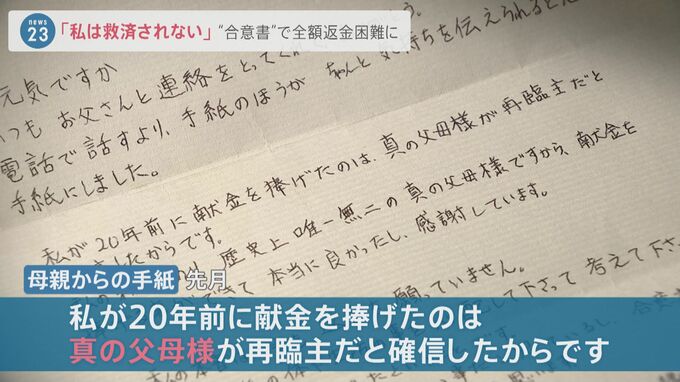 news
23
「私は救済されない」“合意書”で全額返金困難に
元気ですか
いつも お父さんと連絡をとってくれ
電話で話すより、手紙のほうが ちゃんと 気持ちを伝えられると
手紙にしました。
私が20年前に献金を捧げたのは、真の父母様が再臨主だと
したからです。
歴史上唯一無二の真の父母様ですから、献金を
て 本当に良かったし、感謝しています。
願っていません。
して下さって 考えて下さ
母親からの手紙 先月
私が20年前に献金を捧げたのは
真の父母様が再臨主だと確信したからです